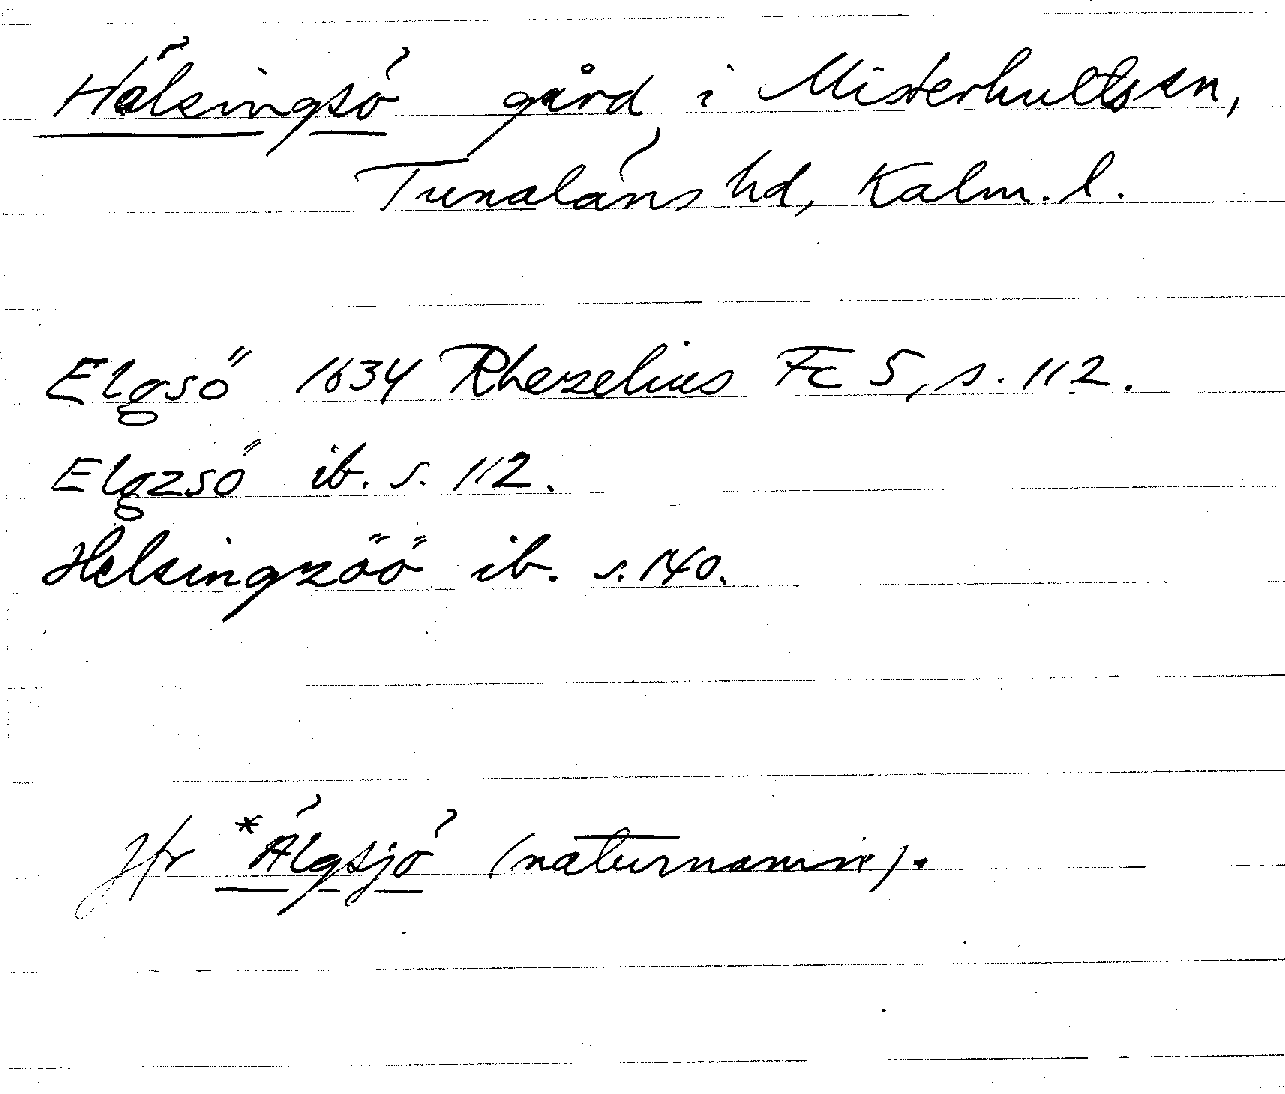 Hälsingsö gård i Misterhults sn,
Tunaläns hd, Kalm. l.
Elgsö 1634 Rhezelius Fc 5, s. 112.
Elgzsö ib. s. 112.
Helsingzöö ib. s. 140.
Jfr *Älgsjö (naturnamn).